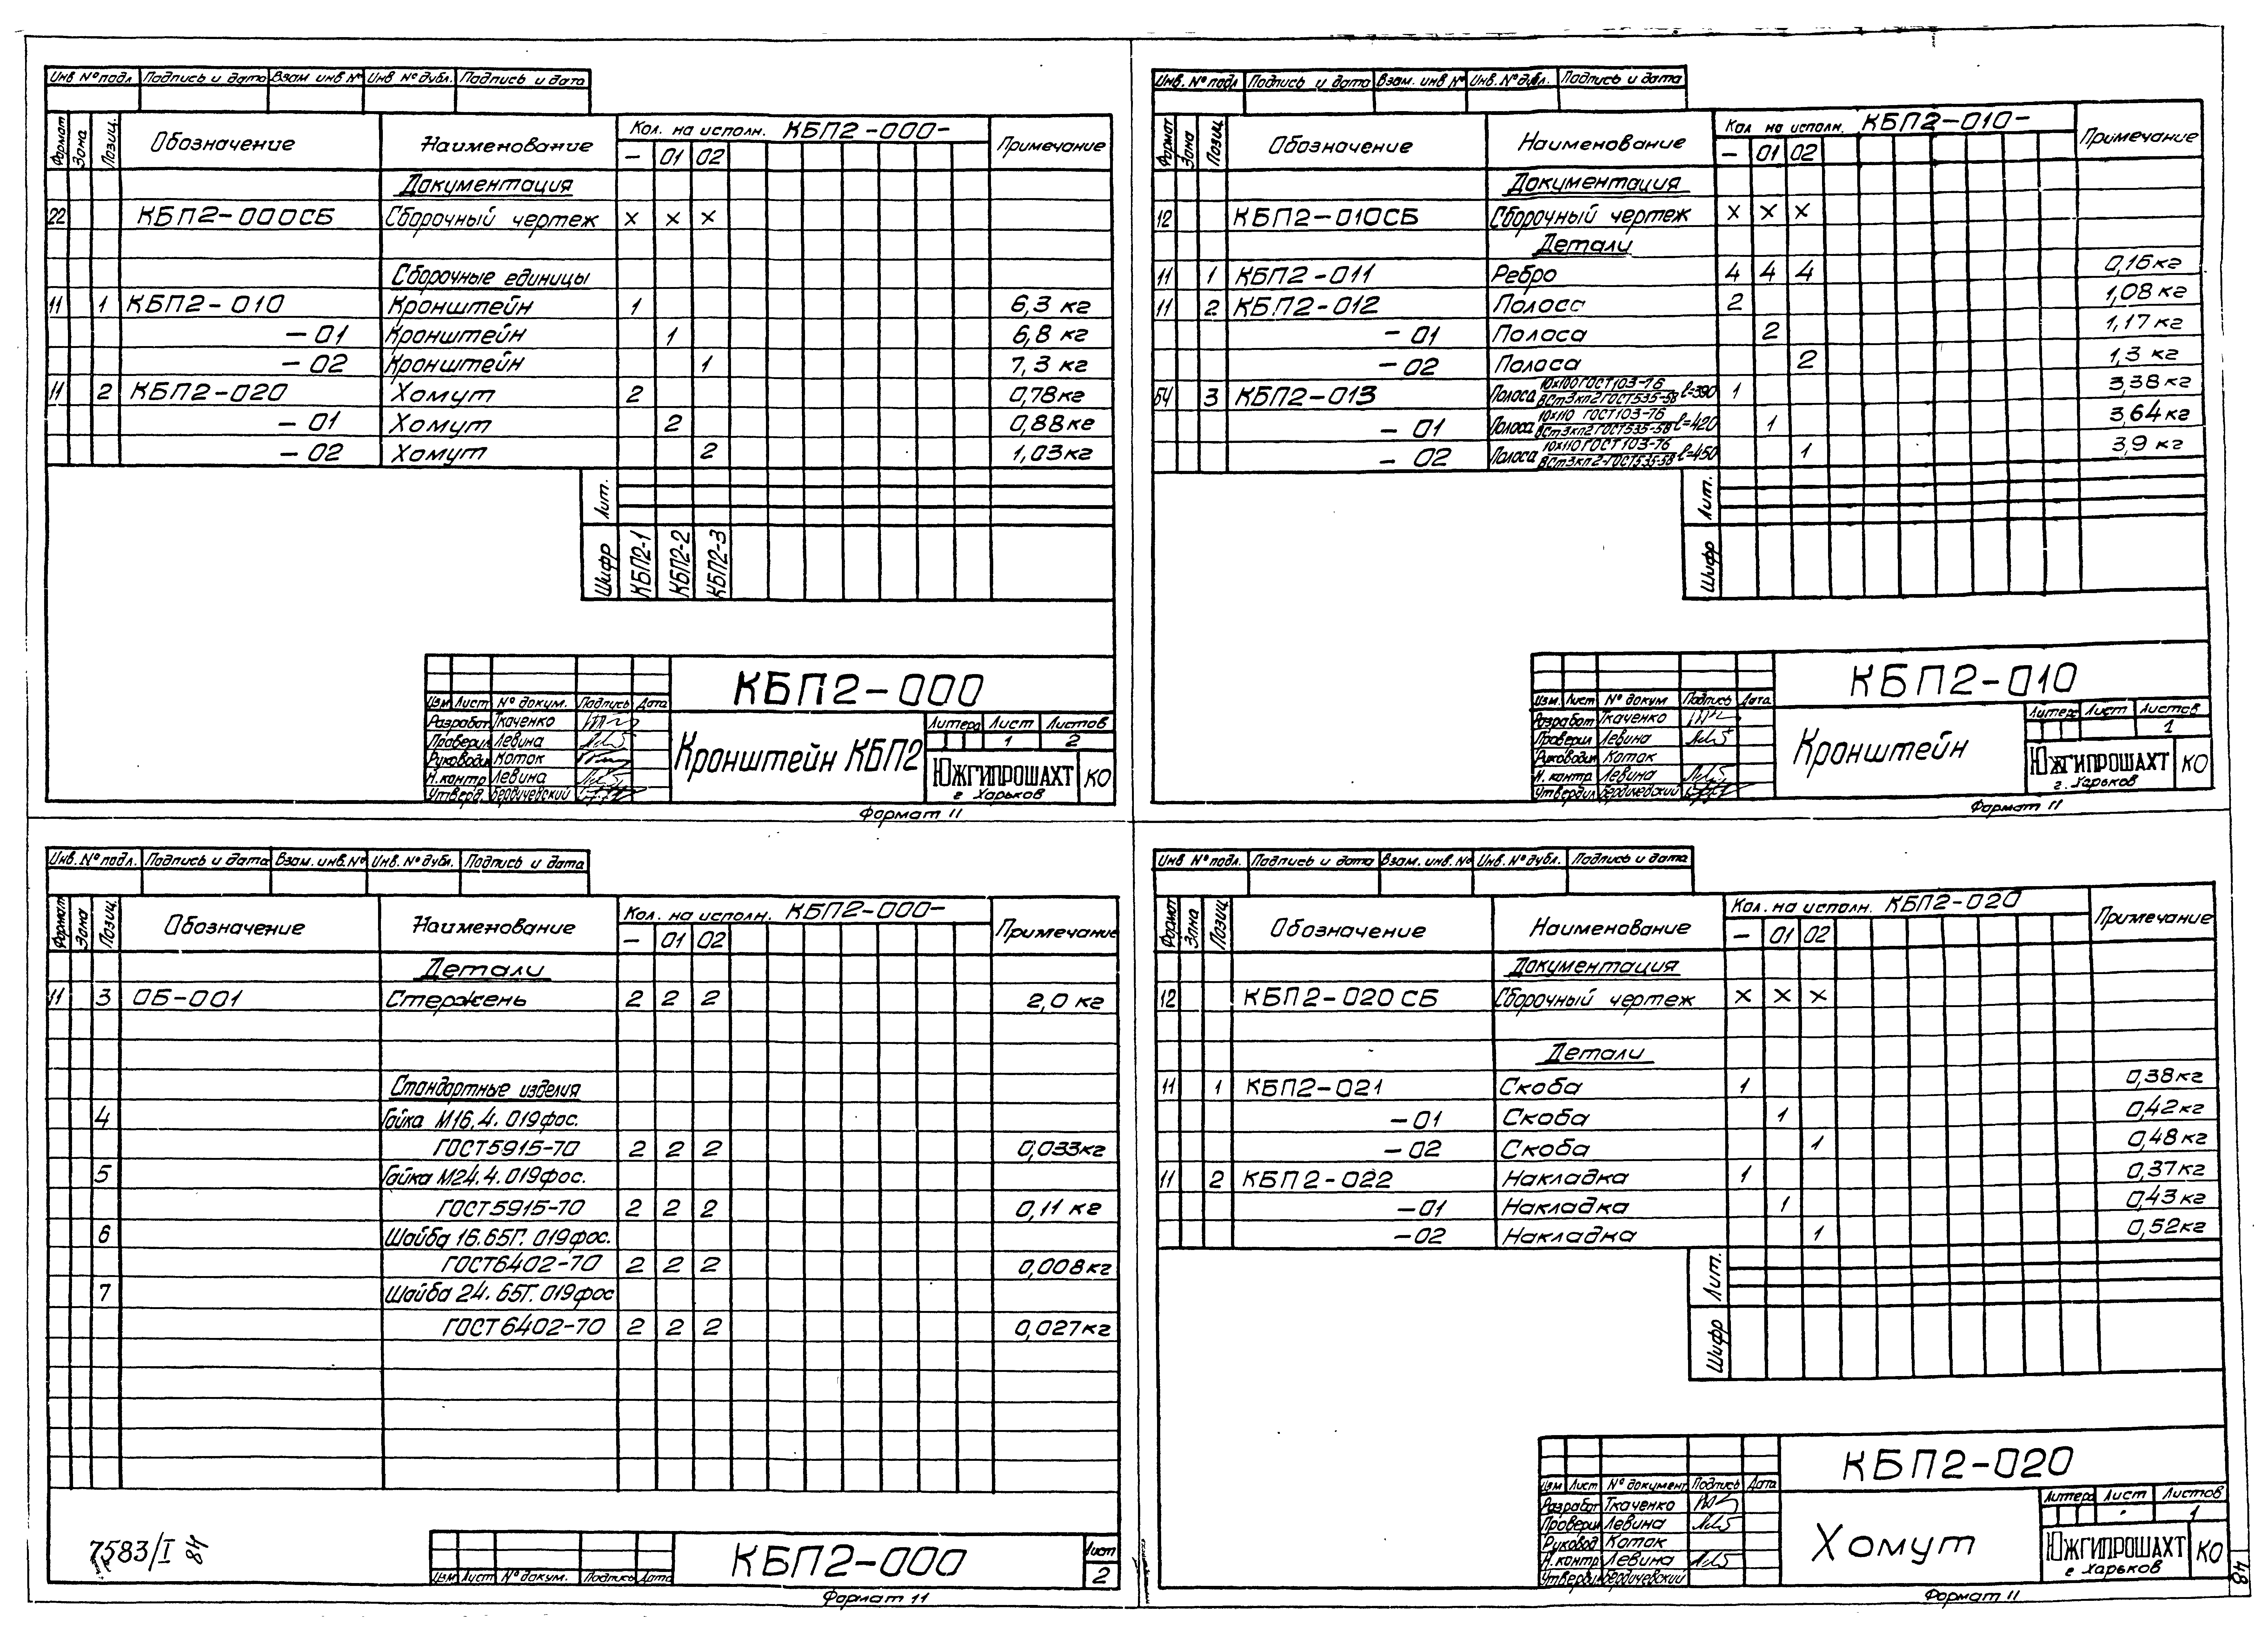 Инв № подл Подпись и дата Взам инв № Инв № дубл. Подпись и дата
Формат Зона Позиц. Обозначение Наименование Кол. на исполн. КБП2-000- Примечание
— 01 02
Документация
22 КБП2-000СБ Сборочный чертеж × × ×
Сборочные единицы
11 1 КБП2-010 Кронштейн 1 6,3 кг
-01 Кронштейн 1 6,8 кг
-02 Кронштейн 1 7,3 кг
11 2 КБП2-020 Хомут 2 0,78кг
-01 Хомут 2 0,88кг
-02 Хомут 2 1,03кг
Лит.
Шифр КБП2-1 КБП2-2 КБП2-3
КБП2-000
Изм Лист № докум. Подпись Дата
Разработ Ткаченко
Проверил Левина
Руководил Коток
Н.контр Левина
Утверд. Бердичевский
Кронштейн КБП2
Литера Лист Листов
1 2
ЮЖГИПРОШАХТ КО
г Харьков
Формат 11
Инв. № подл Подпись и дата Взам. инв № Инв. № дубл. Подпись и дата
Формат Зона Позиц Обозначение Наименование Кол на исполн. КБП2-010- Примечание
— 01 02
Документация
12 КБП2-010СБ Сборочный чертеж × × ×
Детали
11 1 КБП2-011 Ребро 4 4 4 0,16кг
11 2 КБП2-012 Полоса 2 1,08 кг
-01 Полоса 2 1,17кг
-02 Полоса 2 1,3 кг
БЧ 3 КБП2-013 Полоса 10х100 ГОСТ103-76 ВСт3кп2 ГОСТ535-58 ℓ=390 1 3,38кг
-01 Полоса 10х110 ГОСТ103-76 ВСт3кп2 ГОСТ535-58 ℓ=420 1 3,64кг
-02 Полоса 10х110 ГОСТ103-76 ВСт3кп2-ГОСТ535-58 ℓ=450 1 3,9 кг
Лит.
Шифр
КБП2-010
Изм. Лист № докум Подпись Дата
Разработ Ткаченко
Проверил Левина
Руководил Коток
Н. контр Левина
Утвердил Бердичевский
Кронштейн
Литера Лист Листов
1
ЮЖГИПРОШАХТ КО
г. Харьков
Формат 11
Инв. № подл. Подпись и дата Взам. инв. № Инв. № дубл. Подпись и дата
Формат Зона Позиц. Обозначение Наименование Кол. на исполн. КБП2-000- Примечание
— 01 02
Детали
11 3 ОБ-001 Стержень 2 2 2 2,0 кг
Стандартные изделия
4 Гайка М16.4.019фос.
ГОСТ5915-70 2 2 2 0,033кг
5 Гайка М24.4.019фос.
ГОСТ5915-70 2 2 2 0,11 кг
6 Шайба 16.65Г.019фос.
ГОСТ6402-70 2 2 2 0,008кг
7 Шайба 24.65Г.019фос
ГОСТ6402-70 2 2 2 0,027кг
7583/I 84
Изм Лист № докум. Подпись Дата
КБП2-000
Лист
2
Формат 11
Инв № подл. Подпись и дата Взам. инв. № Инв. № дубл. Подпись и дата
Формат Зона Позиц Обозначение Наименование Кол. на исполн. КБП2-020 Примечание
— 01 02
Документация
12 КБП2-020СБ Сборочный чертеж × × ×
Детали
11 1 КБП2-021 Скоба 1 0,38кг
-01 Скоба 1 0,42кг
-02 Скоба 1 0,48кг
11 2 КБП2-022 Накладка 1 0,37кг
-01 Накладка 1 0,43кг
-02 Накладка 1 0,52кг
Лит.
Шифр
КБП2-020
Изм Лист № документ Подпись Дата
Разработ Ткаченко
Проверил Левина
Руковод Коток
Н.контр Левина
Утвердил Бердичевский
Хомут
Литера Лист Листов
1
ЮЖГИПРОШАХТ КО
г Харьков
Формат 11
48